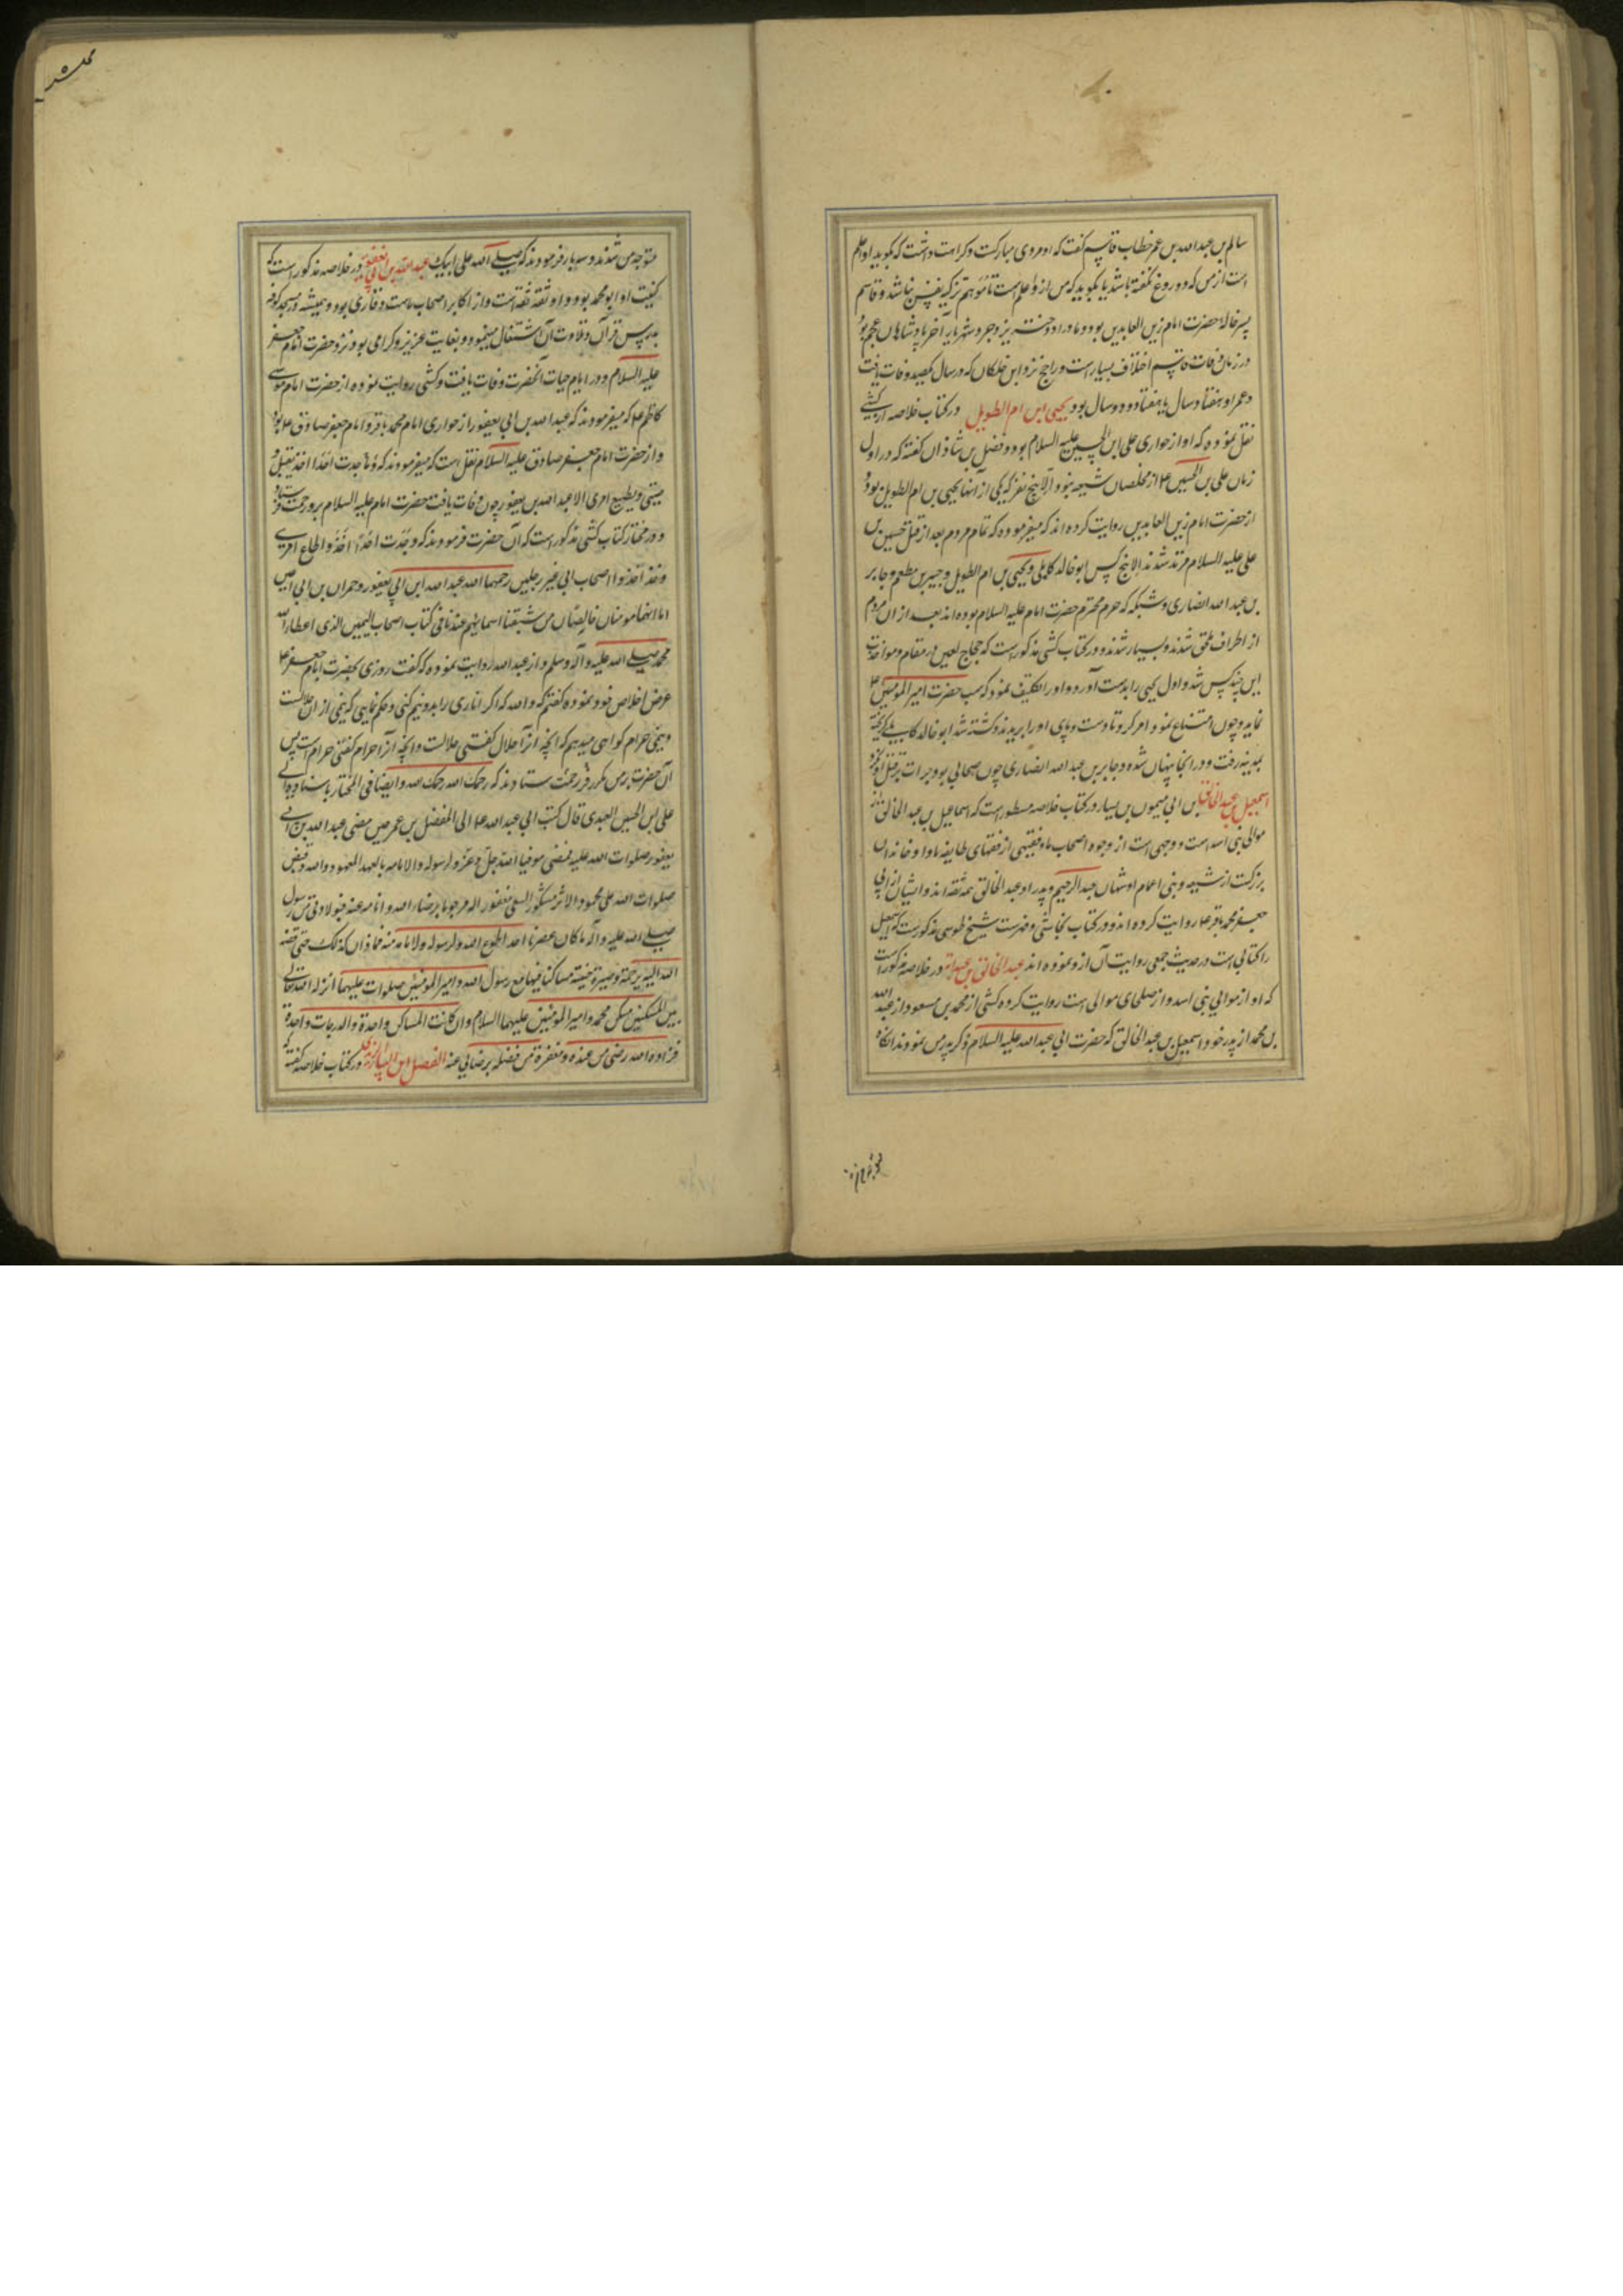 سالم بن عبدالله بن عمر خطاب قاسم گفت که او مروی مبارکت و کرامت داشت که بگوید او اعلم
است از من که دروغ نگفته باشد یا بگوید که من از و اعلم است تا موهم تزکیه نفس نباشد و قاسم
پسر خاله حضرت امام زین العابدین بود و مادر او دختر یزدجرد شهریار آخر پادشاهان عجم بود
در زمان وفات قاسم اختلاف بسیار است و راجح نزد ابن خلکان که در سال یکصد وفات یافت
و عمر او هفتاد سال یا هفتاد و دو سال بود یحیی ابن ام الطویل در کتاب خلاصه از کشی
نقل نموده که او از حواری علی ابن الحسین علیه السلام بود و فضل بن شاذان گفته که در اول
زمان علی بن الحسین ع از مخلصان شیعه نبود الا پنج نفر که یکی از آنها یحیی بن ام الطویل بود و
از حضرت امام زین العابدین روایت کرده اند که میفرموده که تمام مردم بعد از قتل حسین بن
علی علیه السلام مرتد شدند الا پنج کس ابو خالد کابلی و یحیی بن ام الطویل و جبیر بن مطعم و جابر
بن عبد الله انصاری و شبکه که حرم محترم حضرت امام علیه السلام بوده اند بعد از ان مردم
از اطراف ملحق شدند و بسیار شدند و در کتاب کشی مذکور است که حجاج لعین در مقام مواخذت
این چند کس شد و اول یحیی را بدست آورد و او را تکلیف نمود که سب حضرت امیر المومنین ع
نماید و چون امتناع نمود امر کرد تا دست و پای او را بریدند و کشته شد ابو خالد کابلی گریخته
بمدینه رفت و در انجا پنهان شده و جابر بن عبد الله انصاری چون صحابی بود جرات بر قتل او نکرد
اسمعیل بن عبد الخالق بن ابی میمون بن یسار در کتاب خلاصه مسطور است که اسماعیل بن عبد الخالق از
موالی بنی اسد است و وجهی است از وجوه اصحاب ما و فقیهی از فقهای طایفه ما و او خاندان
بزرگست از شیعه و بنی اعمام او شهاب عبد الرحیم و پدر او عبد الخالق همه ثقه اند و ایشان از ابی
جعفر محمد باقر ع روایت کرده اند و در کتاب نجاشی و فهرست شیخ طوسی مذکورست که اسمعیل
را کتابی است در حدیث جمعی روایت آن از و نموده اند عبد الخالق بن عبد ربه در خلاصه مذکور است
که او از موالی بنی اسد و از صلحای موالی است روایت کرده کشی از محمد بن مسعود از عبد الله
بن محمد از پدر خود اسمعیل بن عبد الخالق که حضرت ابی عبد الله علیه السلام ذکر پدر من نمودند انگاه
متوجه من شدند و سه بار فرمودند که صلی الله علی ابیک عبد الله بن ابی یعفور در خلاصه مذکور است که
کنیت او ابو محمد بود و او ثقه ثقه است و از اکابر اصحاب ماست و قاری بود و همیشه در مسجد کوفه
بدرس قران و تلاوت آن اشتغال مینمود و بغایت عزیز و کرامی بود نزد حضرت امام جعفر
علیه السلام و در ایام حیات آنحضرت وفات یافت و کشی روایت نموده از حضرت امام موسی
کاظم ع که میفرمودند که عبد الله بن ابی یعفور از حواری امام محمد باقر و امام جعفر صادق ع بود
و از حضرت امام جعفر صادق علیه السلام نقل است که میفرمودند که ما وجدت احدا اخذ یقبل و
صیتی و یطیع امری الا عبد الله بن یعفور چون وفات یافت حضرت امام علیه السلام برو رحمت فرستاد
و در مختار کتاب کشی مذکور است که آن حضرت فرمودند که وجدت احدا اخذوا اطاع امری
و خذ اخذوا اصحاب ابی غیر رجلین رحمهما الله عبد الله ابن ابی یعفور و حمران بن ابی اعین
اما انهما مومنان خالصان من شیعتنا اسمائهم عندنا فی کتاب اصحاب الیمین الذی اعطا الله
محمد صلی الله علیه و آله وسلم و از عبد الله روایت نموده که گفت روزی بحضرت امام جعفر ع
عرض اخلاص خود نموده گفتم که والله که اکر اناری را بدو نیم کنی و حکم نمایی که نیمی از ان حلالست
و نیمی حرام کواهی میدهم که آنچه از آن حلال گفتی حلالست و انچه از آن حرام گفتی حرام است پس
آن حضرت بر من مکرر رحمت فرستادند که رحمک الله رحمک الله و ایضا فی المختار باسناده الی
علی ابن الحسین العبدی قال کتب ابی عبد الله ع الی المفضل بن عمر حین مضی عبد الله بن ابی
یعفور صلوات الله علیه فمضی موفیا لله جل و عز و لرسوله و لامامه بالعهد المعهود و الله و قبض
صلوات الله علی محمود الاثر مشکور السعی مغفور اله مرحوما برضاء الله و امامه عنه فبولادتی من رسول
صلی الله علیه و آله ما کان عصرنا احد اطوع الله و لرسوله و لامامه منه فما ذال کذلک حتی قبضه
الله الیه برحمة و صیره جنته مساکنا فیها مع رسول الله و امیر المومنین صلوات علیهما انزله الله تعالی
بین المسکنین مسکن محمد و امیر المومنین علیهما السلام و ان کانت المساکن واحدة و الدرجات واحدة
فزاده الله رضی من عنده و مغفرة من فضله برضایی عنه الفضل ابن در کتاب خلاصه گفته که